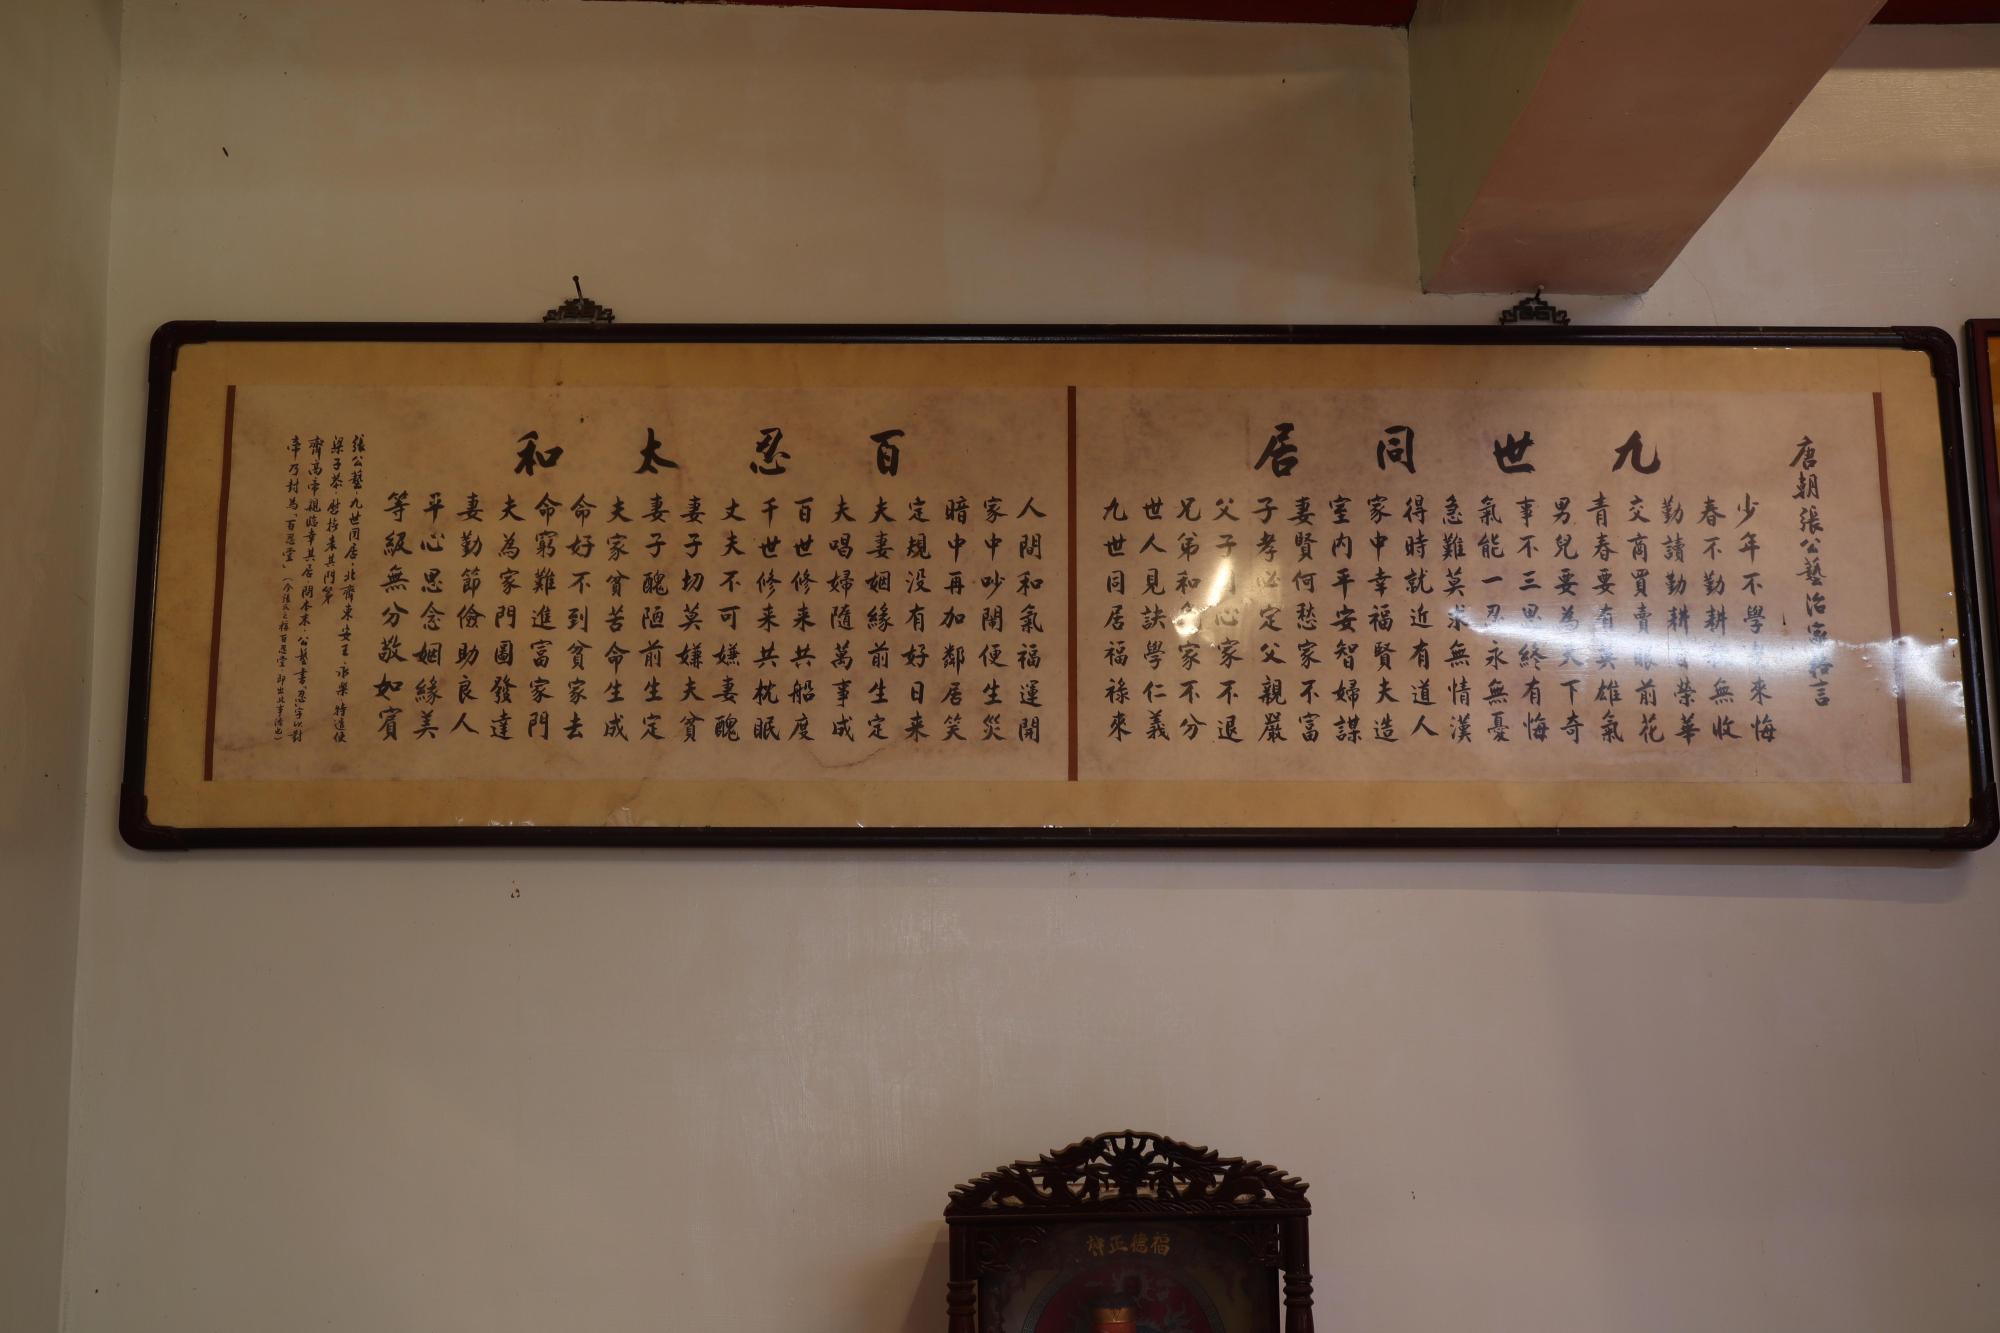 唐朝張公藝治家格言
九世同居
少年不學老來悔
春不勤耕秋無收
勤讀勤耕 榮華
交商買賣眼前花
青春要有英雄氣
男兒要為天下奇
事不三思終有悔
氣能一忍永無憂
急難莫求無情漢
得時就近有道人
家中幸福賢夫造
室內平安智婦謀
妻賢何愁家不富
子孝必定父親嚴
父子同心家不退
兄弟和 家不分
世人見訣學仁義
九世同居福祿來
百忍太和
人間和氣福運開
家中吵鬧便生災
暗中再加鄰居笑
定規没有好日来
夫妻姻緣前生定
夫唱婦隨萬事成
百世修来共船度
千世修来共枕眠
丈夫不可嫌妻醜
妻子切莫嫌夫貧
妻子醜陋前生定
夫家貧苦命生成
命好不到貧家去
命窮難進富家門
夫為家門圖發達
妻勤節儉助良人
平心思念姻緣美
等級無分敬如賓
張公藝，九世同居，北齊東安王，永樂，特遣使
梁子恭，慰撫表其門第
齊高帝親臨幸其居問本末，公藝書「忍」字以對
帝乃封為「百忍堂」（今張氏之稱百忍堂即出此事請出）
福德正神